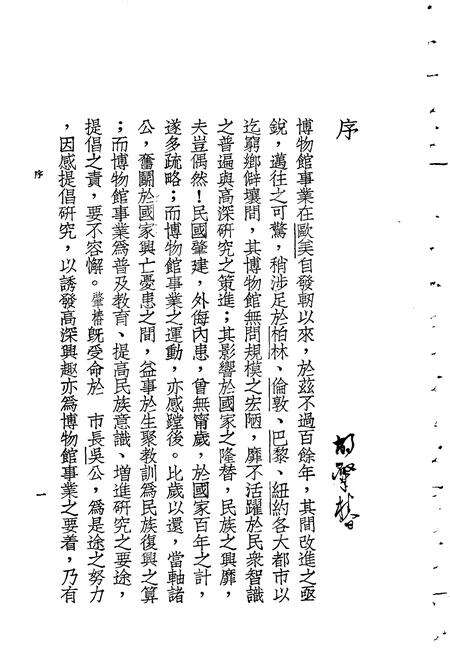 序
胡肇椿
博物館事業在歐美自發軔以來，於茲不過百餘年，其間改進之亟
銳，邁往之可驚，稍涉足於柏林、倫敦、巴黎、紐約各大都市以
迄窮鄉僻壤間，其博物館無問規模之宏陋，靡不活躍於民衆智識
之普遍與高深硏究之策進；其影響於國家之隆替，民族之興靡，
夫豈偶然！民國肇建，外侮內患，曾無甯歲，於國家百年之計，
遂多疏略；而博物館事業之運動，亦感蹚後。比歲以還，當軸諸
公，奮鬭於國家興亡憂患之間，益事於生聚教訓爲民族復興之算
；而博物館事業爲普及教育、提高民族意識、增進硏究之要途，
提倡之責，要不容懈。肇椿旣受命於　市長吳公，爲是途之努力
，因感提倡硏究，以誘發高深興趣亦爲博物館事業之要着，乃有
序
一